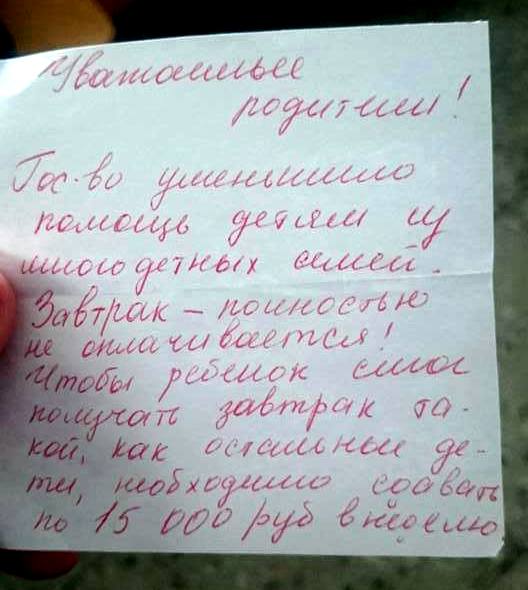 Уважаемые
родители!
Гос-во уменьшило
помощь детям из
многодетных семей.
Завтрак – полностью
не оплачивается!
Чтобы ребенок смог
получать завтрак та-
кой, как остальные де-
ти, необходимо сдавать
по 15 000 руб в неделю